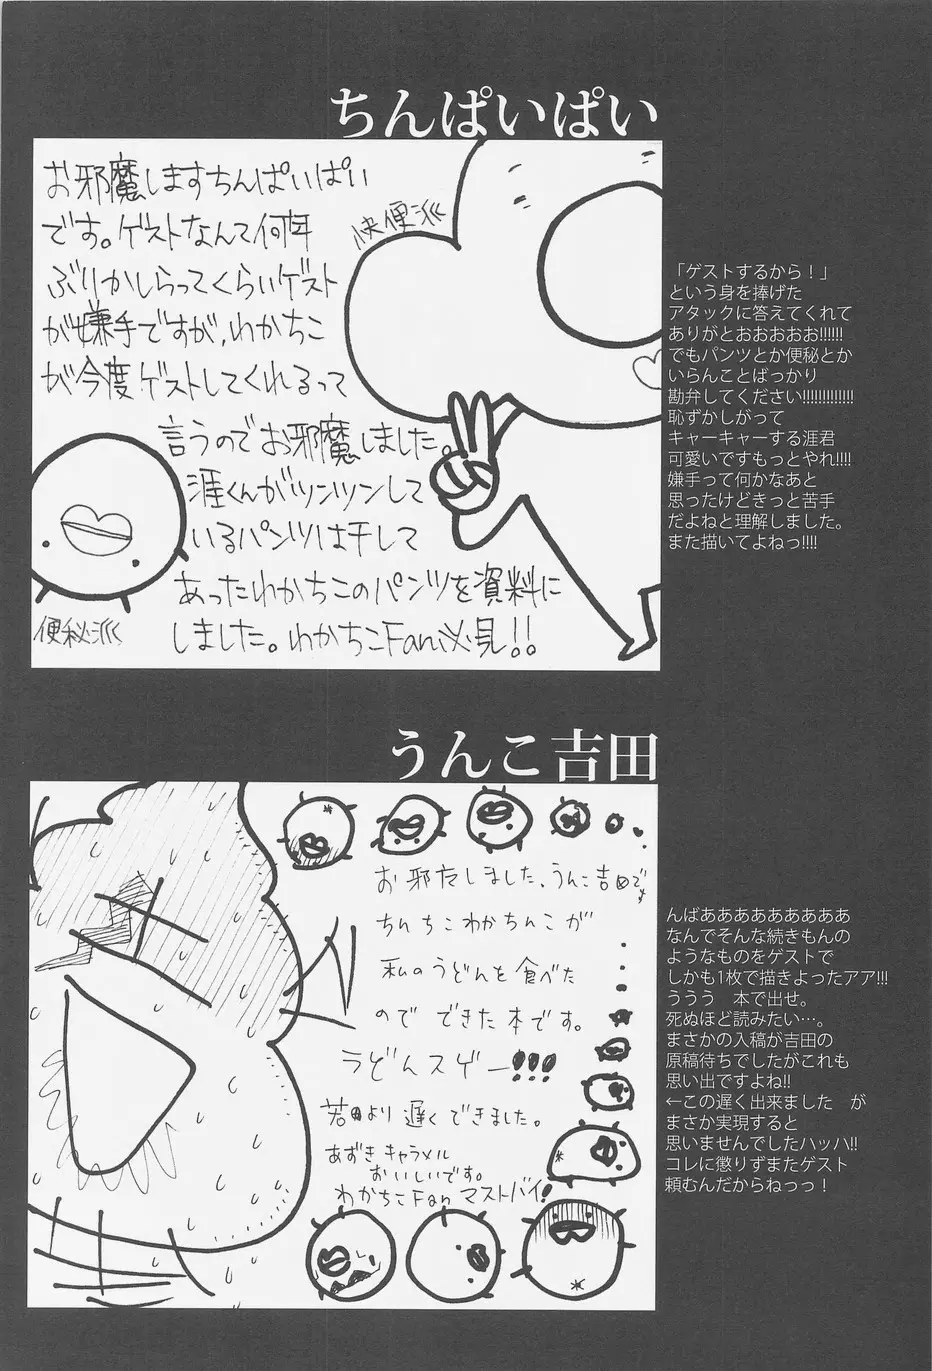 ちんぱいぱい
お邪魔しますちんぱいぱい
です。ゲストなんて何年
ぶりかしらってくらいゲスト
が嫌手ですが、わかちこ
が今度ゲストしてくれるって
言うのでお邪魔しました。
涯くんがツンツンして
いるパンツは干して
あったわかちこのパンツを資料に
しました。わかちこFan必見!!
快便派
便秘派
「ゲストするから！」
という身を捧げた
アタックに答えてくれて
ありがとおおおおお!!!!!!
でもパンツとか便秘とか
いらんことばっかり
勘弁してください!!!!!!!!!!!!!
恥ずかしがって
キャーキャーする涯君
可愛いですもっとやれ!!!!
嫌手って何かなあと
思ったけどきっと苦手
だよねと理解しました。
また描いてよねっ!!!!
うんこ吉田
お邪魔しました、うんこ吉田です
ちんちこわかちんこが
私のうどんを食べた
ので できた本です。
うどんスゲー!!!
若田より 遅く できました。
あずき キャラメル
おいしいです。
わかちこFan マストバイ!
んばあああああああああ
なんでそんな続きもんの
ようなものをゲストで
しかも1枚で描きよったアア!!!
ううう　本で出せ。
死ぬほど読みたい…。
まさかの入稿が吉田の
原稿待ちでしたがこれも
思い出ですよね!!
←この遅く出来ました　が
まさか実現すると
思いませんでしたハッハ!!
コレに懲りずまたゲスト
頼むんだからねっっ！